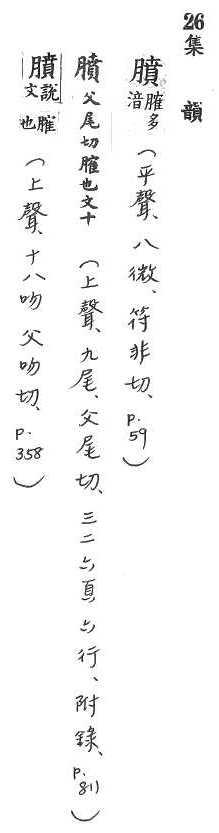 26集韻
膹臛多涪（平聲、八微、符非切、p.59）
膹父尾切臛也文十（上聲、九尾、父尾切、三二六頁六行、附錄、p.811）
膹說文臛也（上聲、十八吻 父吻切、p.358）